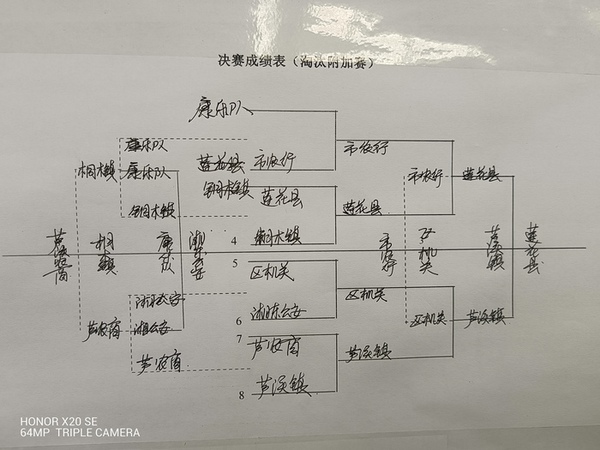 决赛成绩表（淘汰附加赛）
康乐队
康乐队
市农行
市农行
桐木镇
康乐队
莲花县
市农行
莲花县
桐木镇
莲花县
桐木镇
莲花县
4
桐木镇
芦农商
桐木镇
康乐队
湘东公安
市农行
区机关
芦溪镇
莲花县
5
区机关
湘东公安
区机关
6
湘东公安
芦农商
湘东公安
区机关
芦溪镇
7
芦农商
芦农商
芦溪镇
8
芦溪镇
HONOR X20 SE
64MP TRIPLE CAMERA